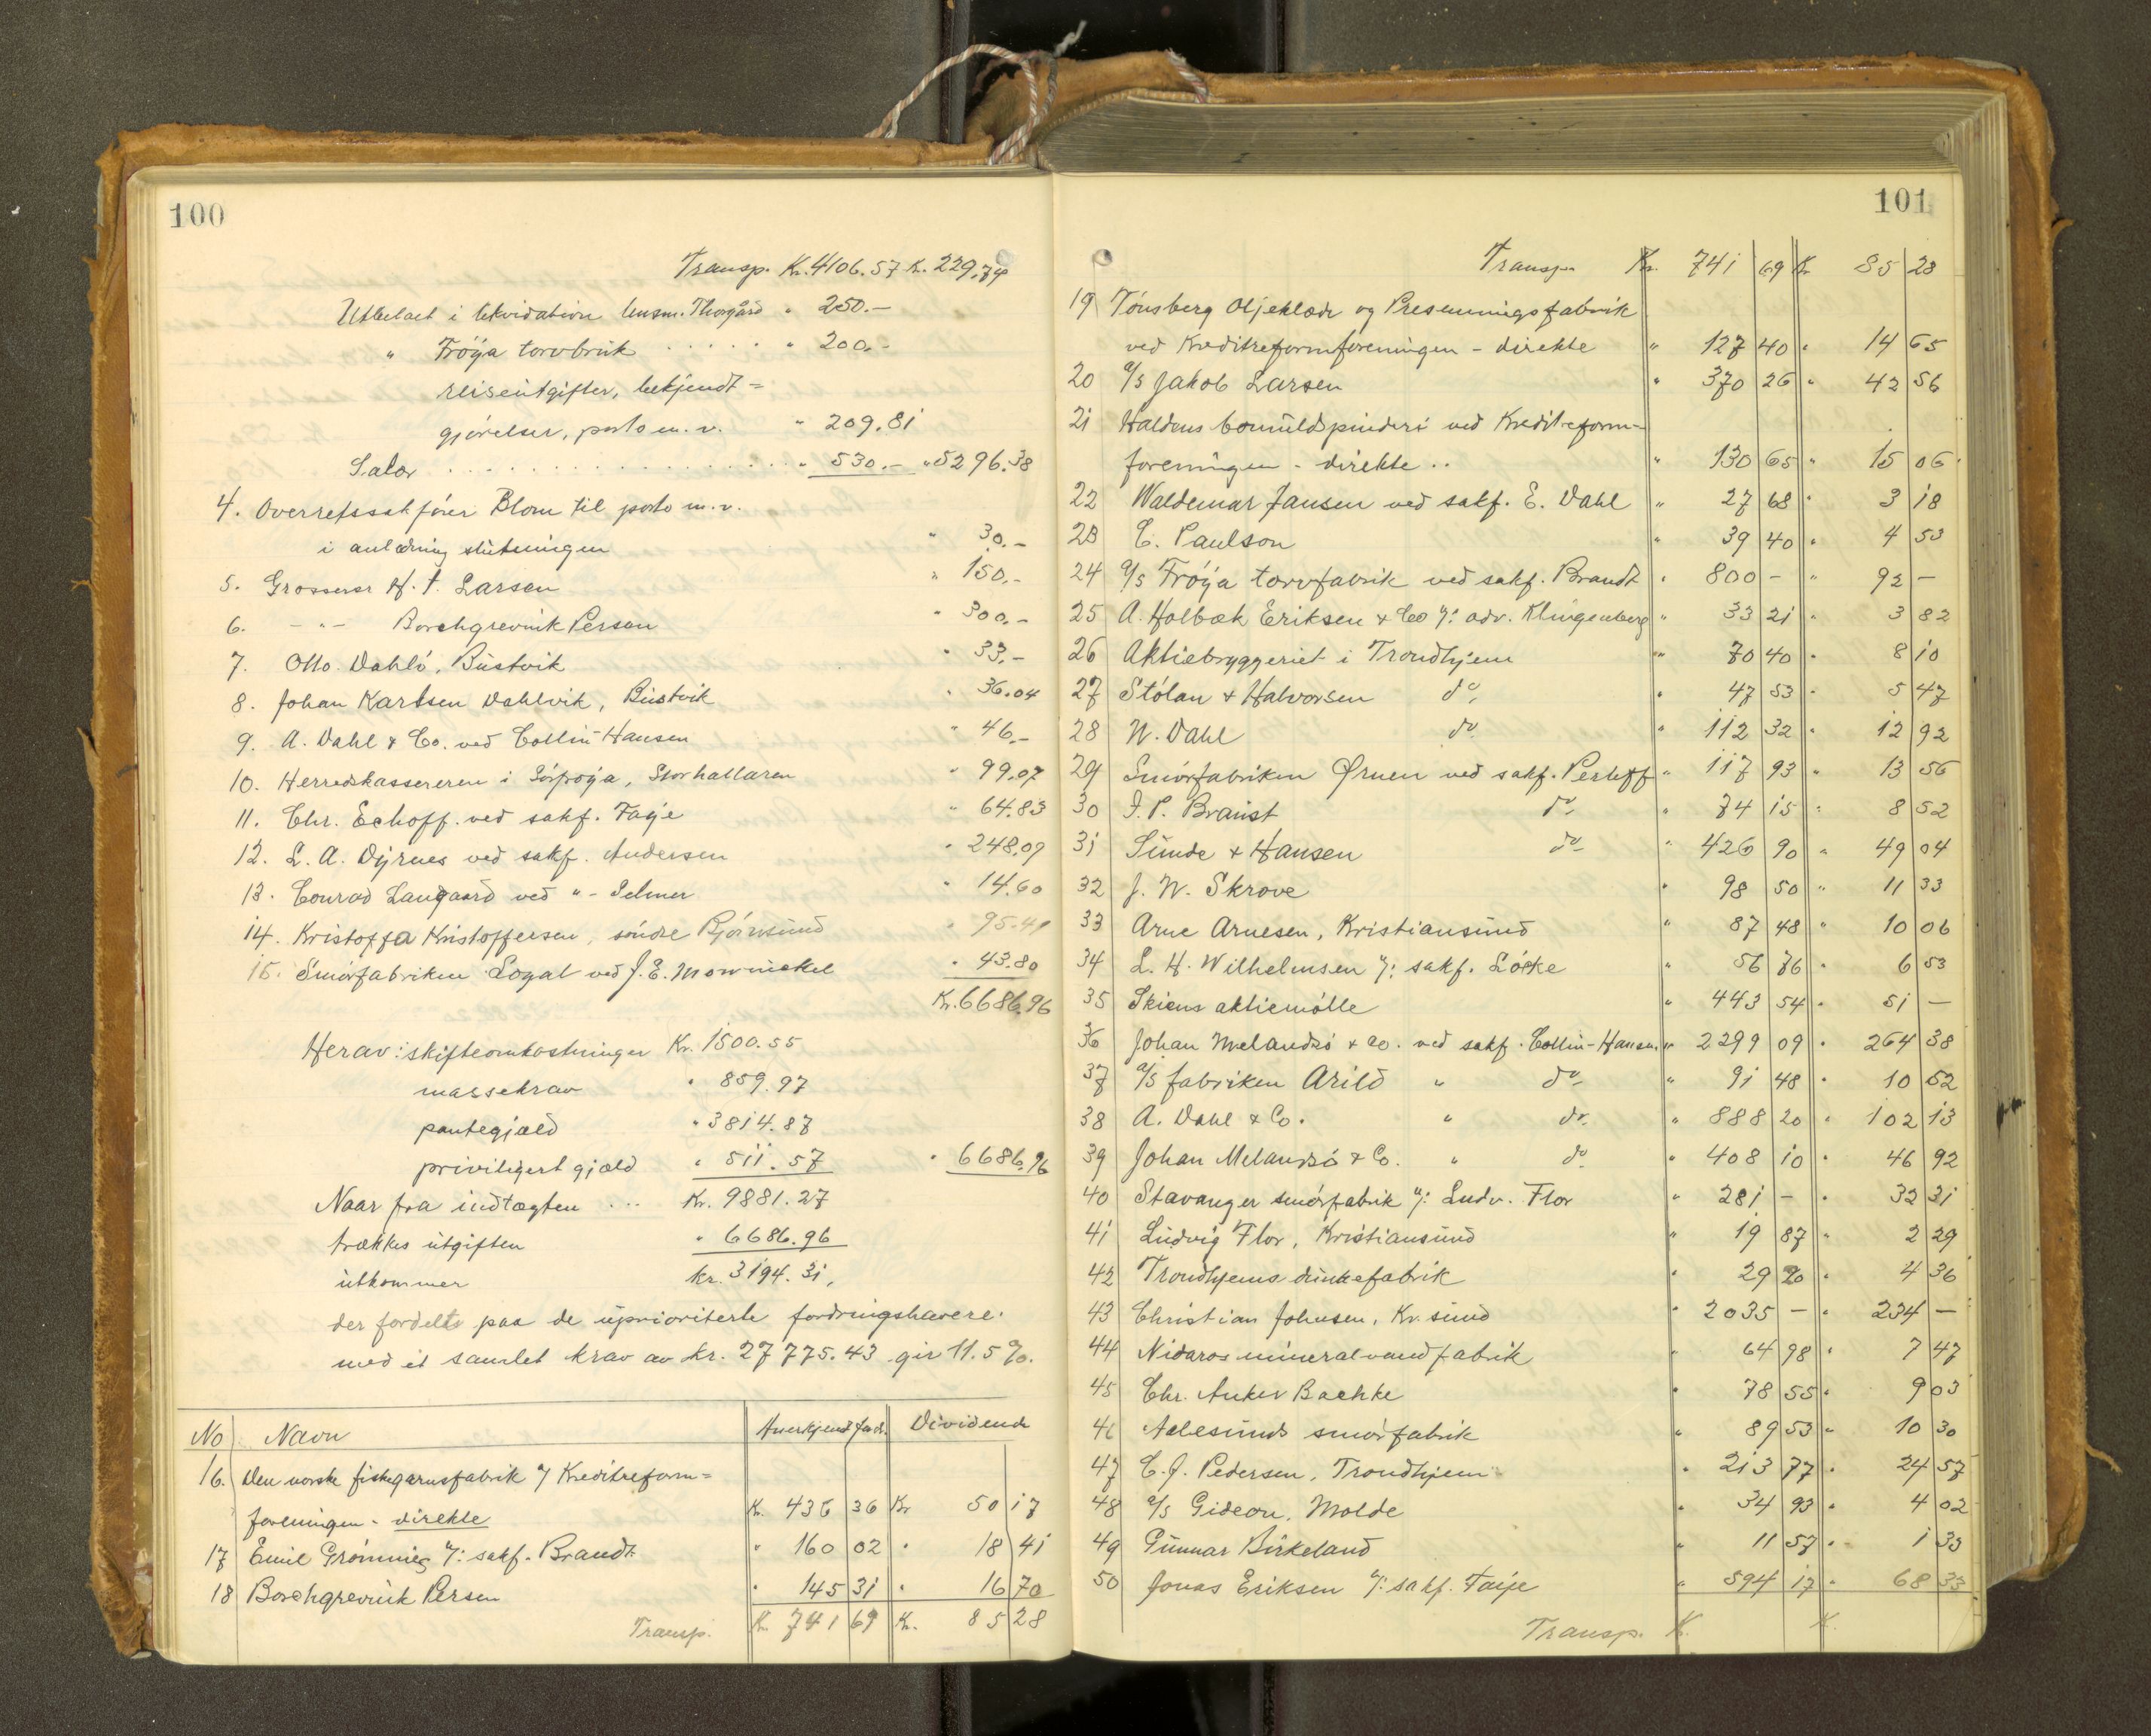 100
Transp. Kr. 4106.57 Kr. 229.74
Utbetalt i likvidation lensm. Thorgård " 250.-
" Frøya torvbruk ..... " 200.-
reiseutgifter, bekjendt=
gjørelser, porto m. v. " 209.81
Salær .......... " 530.- " 5296.38
4. Overretssakfører Blom til porto m. v.
i anledning slutningen " 30.-
5. Grosserer H. F. Larsen " 150.-
6. -"- Borchgrevink Persen " 300.-
7. Otto Dahlø, Bustvik " 33.-
8. Johan Karlsen Dahlvik, Bustvik " 36.04
9. A. Dahl & Co. ved Collin-Hansen " 46.-
10. Herredskassereren i Sørfrøya, Storhallaren " 99.07
11. Chr. Echoff. ved sakf. Faye " 64.83
12. L. A. Dyrnes ved sakf. Andersen " 248.09
13. Conrad Langaard ved "- Selmer " 14.60
14. Kristoffa Kristoffersen, søndre Bjørnsund " 95.41
15. Smørfabriken Logal ved J. E. Mowinckel " 43.80
Kr. 6686.96
Herav: skifteomkostninger Kr. 1500.55
massekrav " 859.97
pantegjæld " 3814.87
priviligert gjæld " 511.57 " 6686.96
Naar fra indtægten ... Kr. 9881.27
trækkes utgiften " 6686.96
utkommer kr. 3194.31,
der fordelts paa de uprioriterte fordringshavere.
med et samlet krav av kr. 27775.43 gir 11.5 %.
No Navn Anerkjendt fordr. Dividende
16. Den norske fiskegarnsfabrik v/ Kreditreform=
foreningen - direkte Kr. 436 36 Kr 50 17
17 Emil Grømnies v/: sakf. Brandt " 160 02 " 18 41
18 Borchgrevink Persen " 145 31 " 16 70
Transp. Kr. 741 69 Kr. 85 28
101
Transp. Kr. 741 69 Kr 85 28
19 Tønsberg Oljeklæde og Presenningsfabrik
ved Kreditreformforeningen - direkte " 127 40 " 14 65
20 a/s Jakob Larsen " 370 26 " 42 56
21 Haldens bomuldspinderi ved Kreditreform-
foreningen - direkte .. " 130 65 " 15 06
22 Waldemar Jansen ved sakf. E. Dahl " 27 68 " 3 18
23 C. Paulson " 39 40 " 4 53
24 a/s Frøya torvfabrik ved sakf. Brandt " 800 - " 92 -
25 A. Holbæk Eriksen & Co v/: adv. Klingenberg " 33 21 " 3 82
26 Aktiebryggeriet i Trondhjem " 70 40 " 8 10
27 Stølan & Halvorsen do " 47 53 " 5 47
28 W. Dahl do " 112 32 " 12 92
29 Smørfabriken Ørnen ved sakf. Perloff " 117 93 " 13 56
30 I. P. Braust do " 74 15 " 8 52
31 Sunde & Hansen do " 426 90 " 49 04
32 J. W. Skrove " 98 50 " 11 33
33 Arne Arnesen, Kristiansund " 87 48 " 10 06
34 L. H. Wilhelmsen v/: sakf. Løcke " 56 76 " 6 53
35 Skiens aktiemølle " 443 54 " 51 -
36 Johan Melandsø & Co. ved sakf. Collin-Hansen " 2299 09 " 264 38
37 a/s fabriken Arild " do " 91 48 " 10 52
38 A. Dahl & Co. " do " 888 20 " 102 13
39 Johan Melandsø & Co. " do " 408 10 " 46 92
40 Stavanger smørfabrik v/: Ludv. Flor " 281 - " 32 31
41 Ludvig Flor, Kristiansund " 19 87 " 2 29
42 Trondhjems dunkefabrik " 29 20 " 4 36
43 Christian Johnsen, Kr. sund " 2035 - " 234 -
44 Nidaros mineralvandfabrik " 64 98 " 7 47
45 Chr. Anker Bachke " 78 55 " 9 03
46 Aalesunds smørfabrik " 89 53 " 10 30
47 C. J. Pedersen, Trondhjem " 213 77 " 24 57
48 a/s Gideon, Molde " 34 93 " 4 02
49 Gunnar Birkeland " 11 57 " 1 33
50 Jonas Eriksen v/: sakf. Faye " 594 17 " 68 33
Transp. K. K.